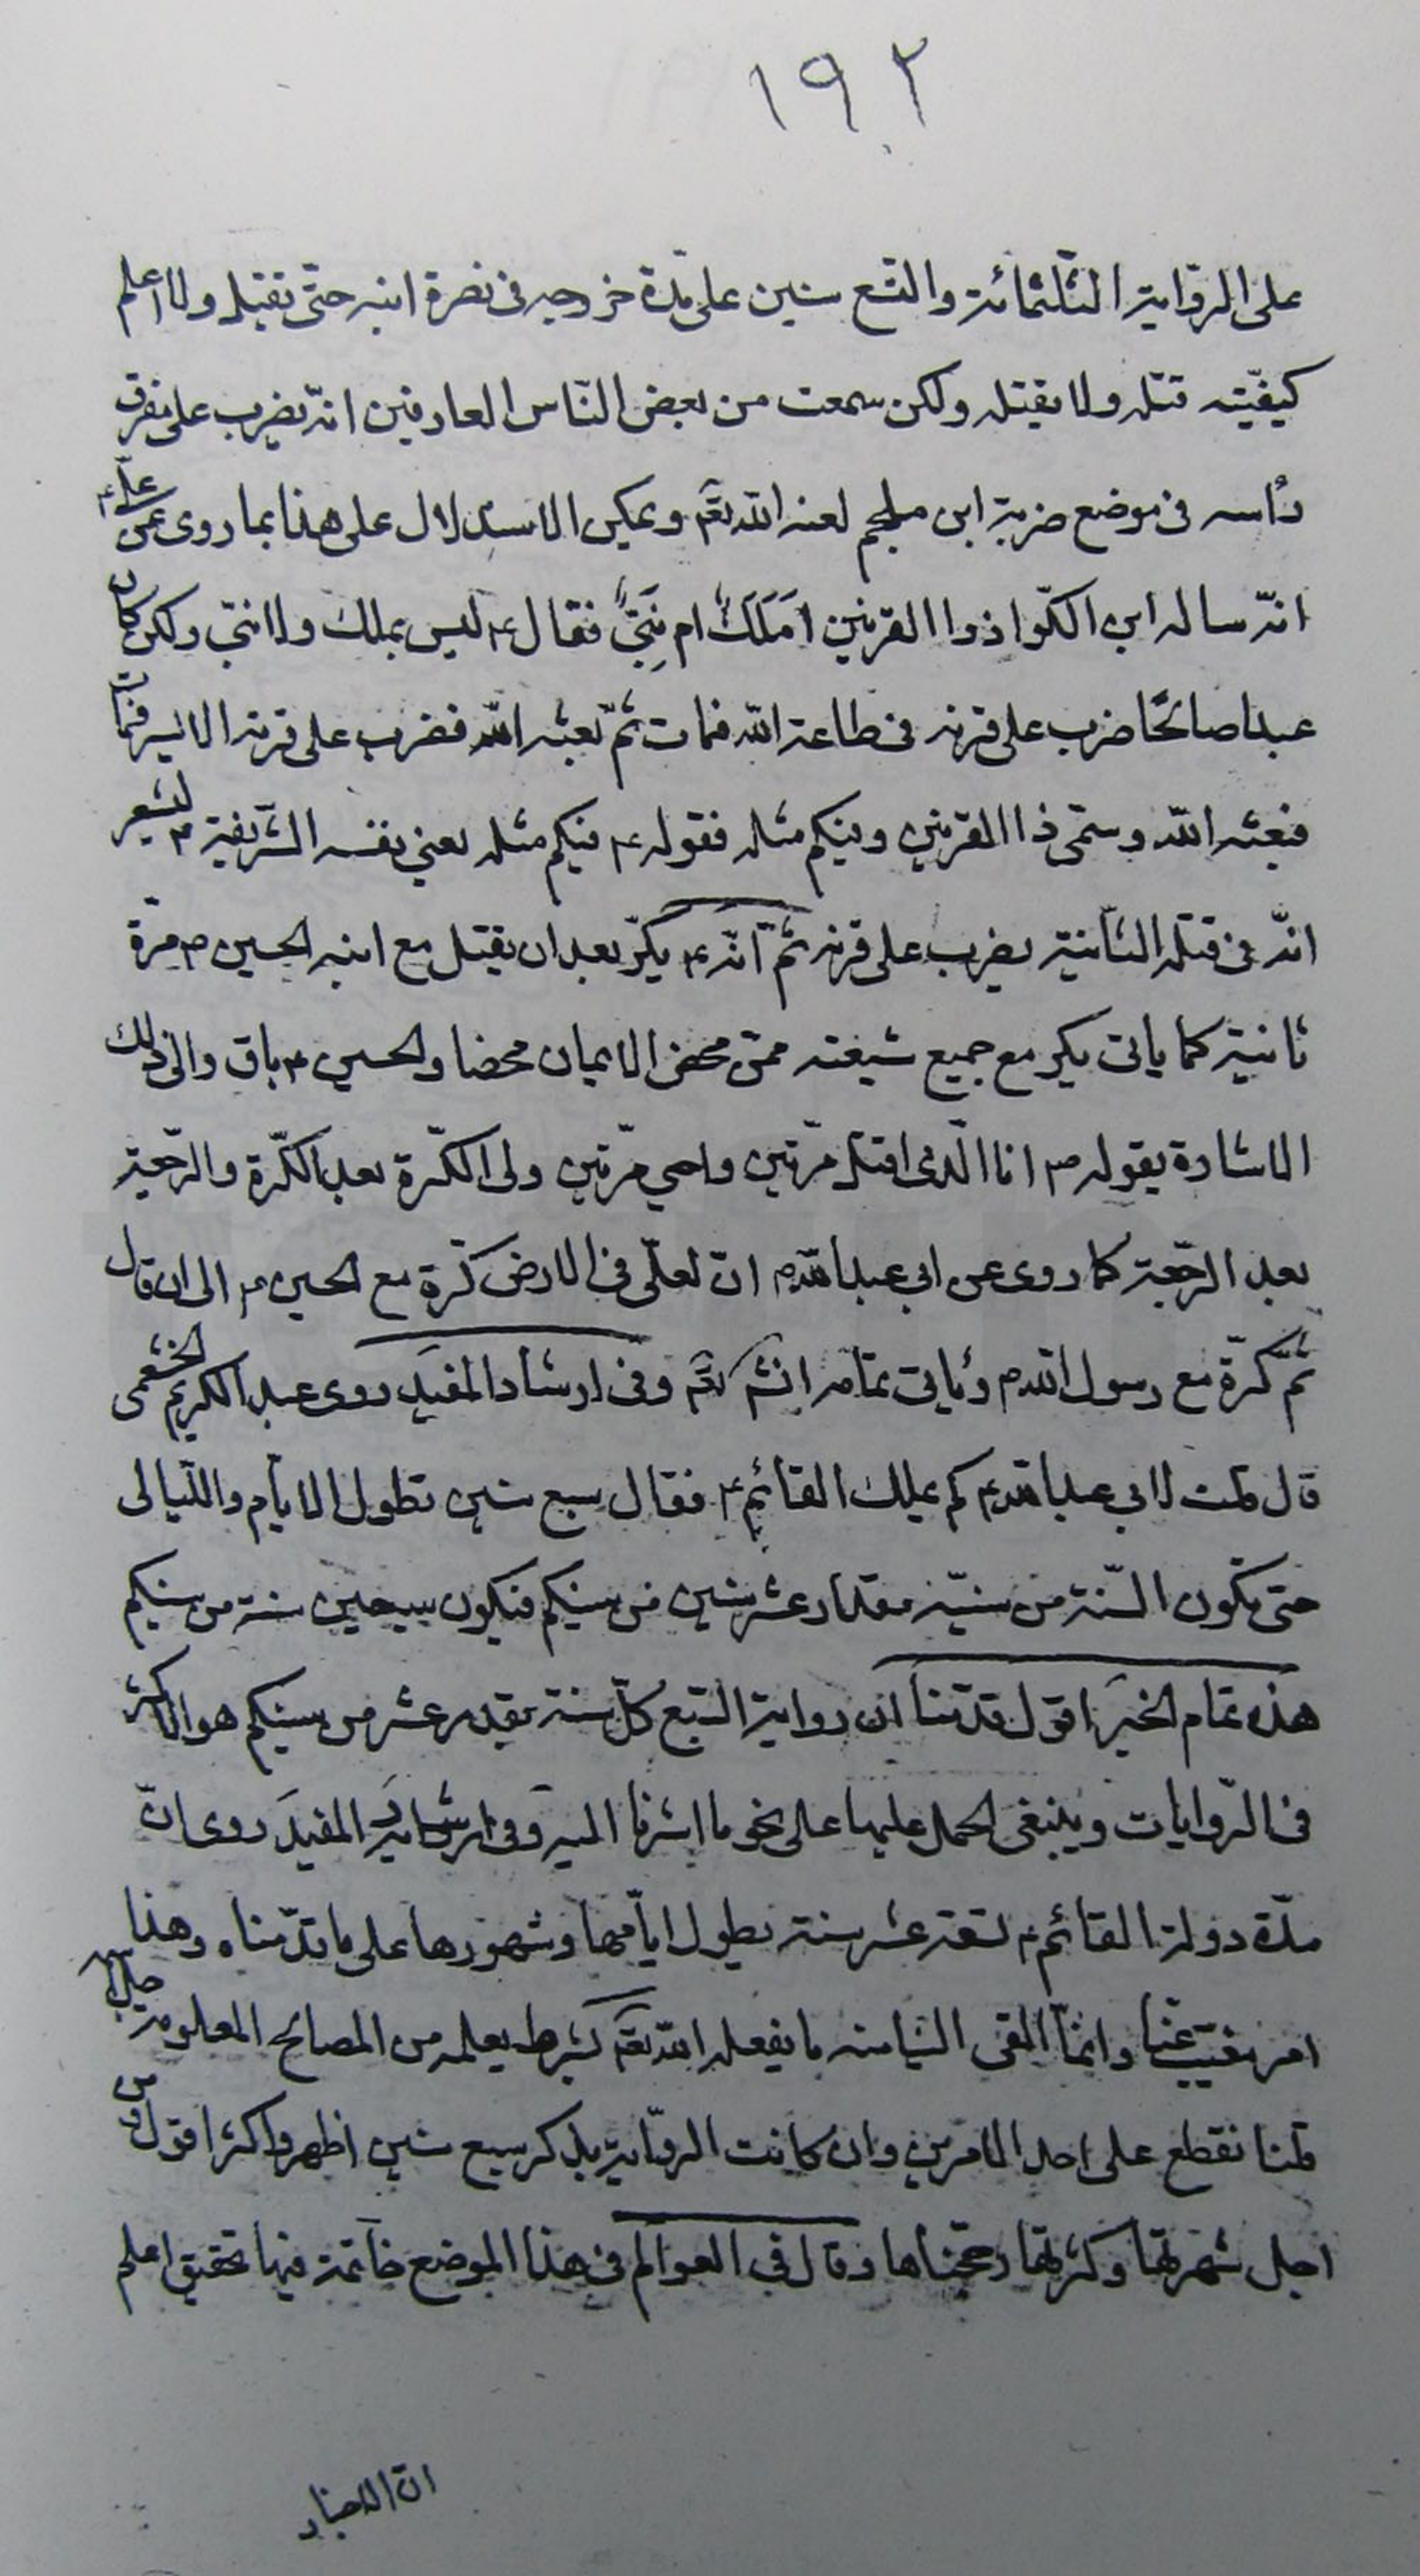 ١٩٢
على الرواية الثلثمائة والتسع سنين على مدة خروجه فى نصرة ابنه حتى يقتل ولا اعلم
كيفية قتله ولا يقتله ولكن سمعت من بعض الناس العارفين انه يضرب على مفرق
رأسه فى موضع ضربة ابن ملجم لعنه الله تعم ويمكن الاستدلال على هذا بما روى عن علىء
انه ساله ابن الكوا ذوا القرنين أَمَلَكٌ ام نَبِىٌّ فقالء ليس بملك ولا نبى ولكن كان
عبدا صالحًا ضرب على قرنه فى طاعة الله فمات ثم بعثه الله فضرب على قرنه الايسر فمات
فبعثه الله وسمى ذا القرنين وفيكم مثله فقولهء فيكم مثله يعنى نفسه الشريفةء ليشعر
انه فى قتله الثانية يضرب على قرنه ثم انهء يكر بعد ان يقتل مع ابنه الحسينء مرة
ثانية كما ياتى يكر مع جميع شيعته ممن محض الايمان محضا والحسينء باق والى ذلك
الاشارة بقولهء انا الذى اقتل مرتين واحيى مرتين ولى الكرة بعد الكرة والرجعة
بعد الرجعة كما روى عن ابى عبد اللهء ان لعلى فى الارض كرة مع الحسينء الى ان قال
ثم كرة مع رسول اللهم ويأتى تمامه انشم تعم وفى ارشاد المفيد روى عبد الكريم الخثعمى
قال قلت لابى عبد اللهء كم يملك القائمء فقال سبع سنين تطول الايام والليالى
حتى تكون السنة من سنيه مقدار عشر سنين من سنيكم فيكون سبعين سنة من سنيكم
هذه تمام الخبر اقول قدمنا ان رواية السبع كل سنة بقدر عشر من سنيكم هو الاكثر
فى الروايات وينبغى الحمل عليها على نحو ما اشرنا اليه وفى ارشاد المفيد روى ان
مدة دولة القائمء تسعة عشر سنة يطول ايامها وشهورها على ما قدمناه وهذا
امر مغيب عنا وانما القى الينا منه ما يفعله الله تعم بشرط يعلمه من المصالح المعلومة
قلنا نقطع على احد الامرين وان كانت الرواية بذكر سبع سنين اظهر واكثر اقول ومن
اجل شهرتها وكثرتها رجحناها وقال فى العوالم فى هذا الموضع خاتمة فيها تحقيق اعلم
ان الاخبار